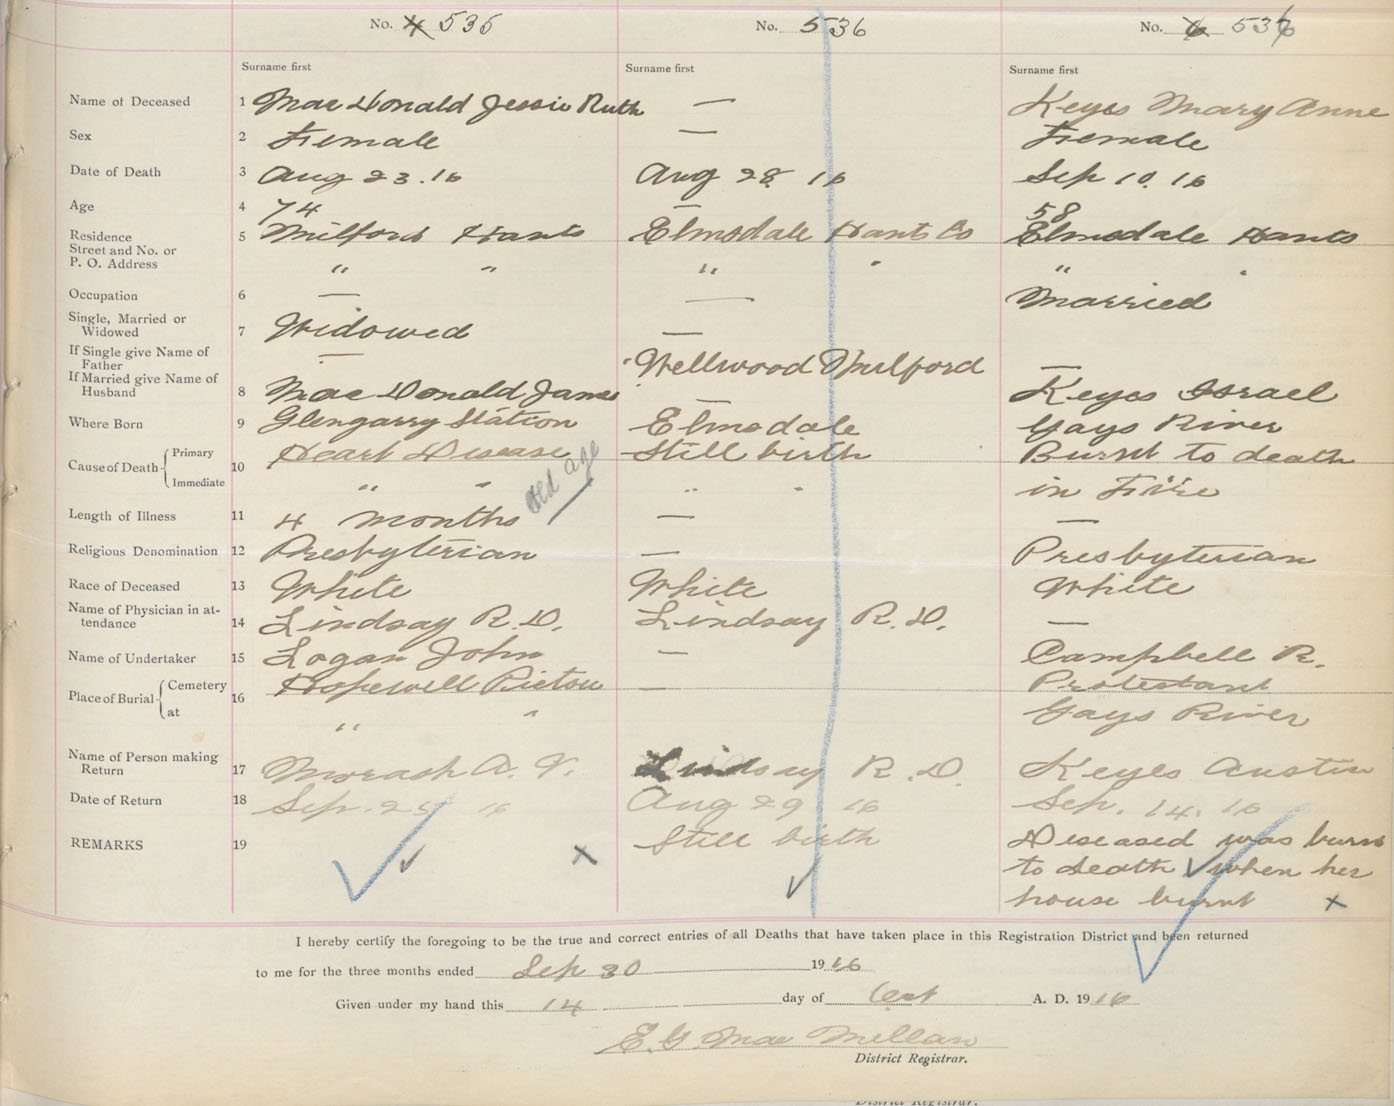 No. 4 535
No. 536
No. 6 537
Surname first
Surname first
Surname first
Name of Deceased 1 Mac Donald Jessie Ruth — Keyes Mary Anne
Sex 2 Female — Female
Date of Death 3 Aug 23.16 Aug 28 16 Sep 10.16
Age 4 74 — 58
Residence 5 Milford Hants Elmsdale Hants Co Elmsdale Hants
Street and No. or
P. O. Address " " " " " "
Occupation 6 — — Married
Single, Married or
Widowed 7 Widowed —
If Single give Name of
Father — Wellwood —
If Married give Name of
Husband 8 Mac Donald James — Keyes Israel
Where Born 9 Glengarry Station Elmsdale Gays River
Cause of Death Primary 10 Heart Disease Still birth Burnt to death
Immediate " " " " in Fire
old age
Length of Illness 11 4 months — —
Religious Denomination 12 Presbyterian — Presbyterian
Race of Deceased 13 White White White
Name of Physician in at-
tendance 14 Lindsay R.D. Lindsay R.D. —
Name of Undertaker 15 Logan John — Campbell R.
Place of Burial Cemetery 16 Hopewell Pictou — Protestant
at " " Gays River
Name of Person making
Return 17 Morash A. V. Lindsay R. D. Keyes Austin
Date of Return 18 Sep. 25 16 Aug 29 16 Sep. 14. 16
REMARKS 19 Still birth Diseased was burnt
to death when her
house burnt
I hereby certify the foregoing to be the true and correct entries of all Deaths that have taken place in this Registration District and been returned
to me for the three months ended Sep 30 1916
Given under my hand this 14 day of Oct A. D. 1916
E. G. Mac Millan
District Registrar.
District Registrar.